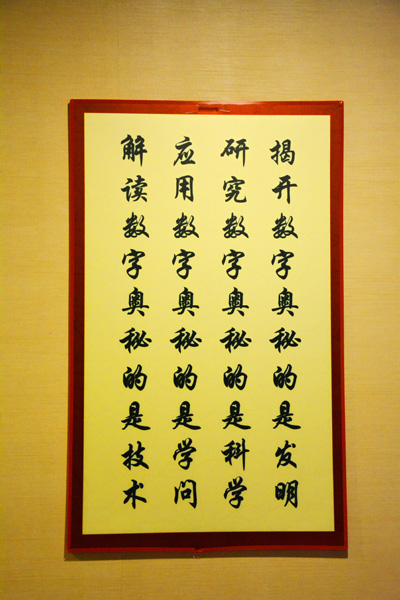 揭开数字奥秘的是发明
研究数字奥秘的是科学
应用数字奥秘的是学问
解读数字奥秘的是技术